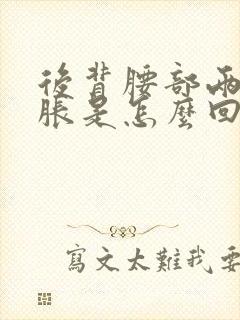 後背腰部兩
脹是怎麼回
寫文太難我要